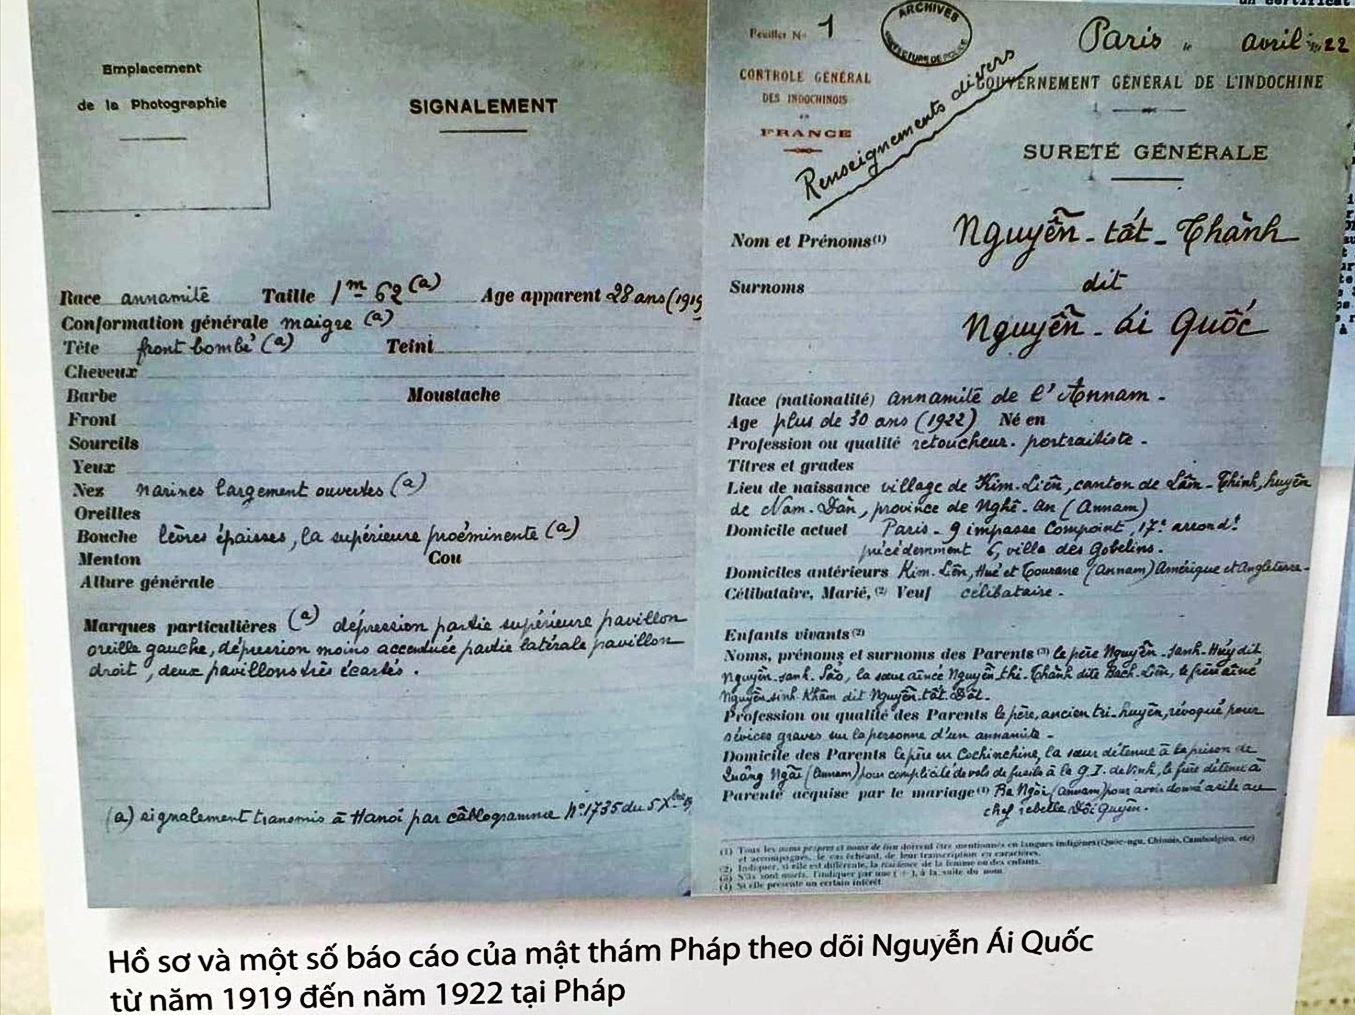 Emplacement
de la Photographie
SIGNALEMENT
Race annamite Taille 1m 62 (a) Age apparent 28 ans (1919
Conformation générale maigre (a)
Tête front bombé (a) Teint
Cheveux
Barbe Moustache
Front
Sourcils
Yeux
Nez narines largement ouvertes (a)
Oreilles
Bouche lèvres épaisses, la supérieure proéminente (a)
Menton Cou
Allure générale
Marques particulières (a) dépression partie supérieure pavillon
oreille gauche, dépression moins accentuée partie latérale pavillon
droit, deux pavillons très écartés.
(a) signalement transmis à Hanoi par câblogramme No 1735 du 5 Xbre
Feuillet No 1
ARCHIVES
PREFECTURE DE POLICE
Paris le avril 1922
CONTROLE GÉNÉRAL
DES INDOCHINOIS
en
FRANCE
Renseignements divers
GOUVERNEMENT GÉNÉRAL DE L'INDOCHINE
SURETÉ GÉNÉRALE
Nom et Prénoms (1) Nguyễn-tất-Thành
Surnoms dit
Nguyễn-ái Quốc
Race (nationalité) annamite de l'Annam.
Age plus de 30 ans (1922) Né en
Profession ou qualité retoucheur. portraitiste.
Titres et grades
Lieu de naissance village de Kim-Liên, canton de Lâm-Thinh, huyên
de Nam-Dàn, province de Nghê-An (Annam)
Domicile actuel Paris. 9 impasse Compoint, 17e arrondt
précédemment 6, villa des Gobelins.
Domiciles antérieurs Kim-Liên, Hué et Tourane (Annam) Amérique et Angleterre-
Célibataire, Marié, (2) Veuf célibataire.
Enfants vivants (2)
Noms, prénoms et surnoms des Parents (3) le père Nguyễn-sanh-Húy dit
Nguyễn-sanh-Sắc, la sœur aînée Nguyễn thi-Thành dite Bach-Liên, le frère aîné
Nguyễn sinh Khâm dit Nguyễn-tất-Đạt-
Profession ou qualité des Parents le père, ancien tri-huyên, révoqué pour
sévices graves sur la personne d'un annamite -
Domicile des Parents le père en Cochinchine, la sœur détenue à la prison de
Quảng Ngãi (Annam) pour complicité de vols de fusils à la G.I. de Vinh, le frère détenu à
Parenté acquise par le mariage (4) Ba Ngòi (Annam) pour avoir donné asile au
chef rebelle Đội Quyên.
(1) Tous les noms propres et noms de lieu doivent être mentionnés en langues indigènes (Quoc-ngu, Chinois, Cambodgien, etc)
et accompagnés, le cas échéant, de leur transcription en caractères.
(2) Indiquer, si elle est différente, la résidence de la femme ou des enfants.
(3) S'ils sont morts, l'indiquer par une ( + ), à la suite du nom.
(4) Si elle présente un certain intérêt.
Hồ sơ và một số báo cáo của mật thám Pháp theo dõi Nguyễn Ái Quốc
từ năm 1919 đến năm 1922 tại Pháp